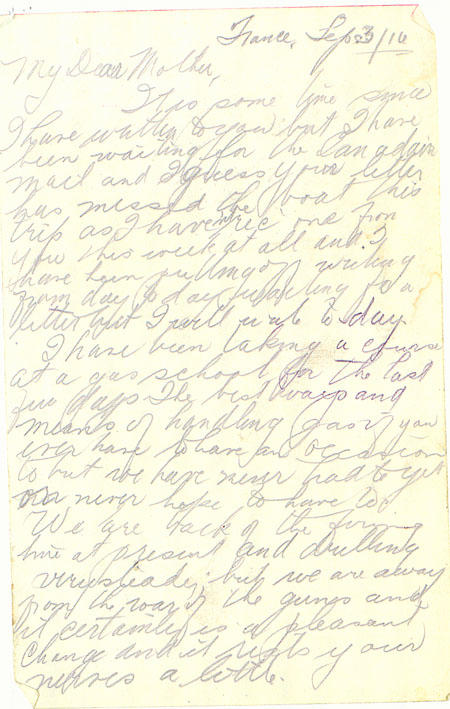 France, Sep. 3/16
My Dear Mother,
It is some time since
I have written to you but I have
been waiting for the Canadian
mail and I guess your letter
has missed the boat this
trip as I havent rec' one from
you this week at all and I
have been putting off writing
from day to day waiting for a
letter but I will write to day
I have been taking a course
at a gas school for the last
few days The best ways and
means of handling gas if you
ever have to have an occasion
to but we have never had to yet
and never hope to have to.
We are back of the firing
line at present and drilling
steady, but we are away
from the roar of the guns and
it certainly is a pleasant
change and it rests your
nerves a little.